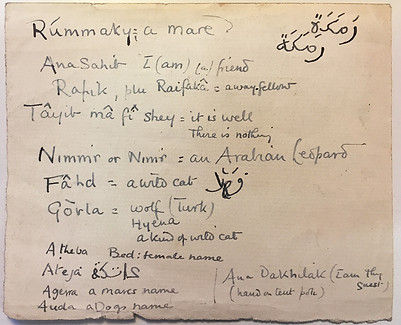 Rúmmaky = a mare? رَمَكَة
رَمَكَة
Ana Sahib I (am) (a) friend
Rafik, plu Raifakâ = a wayfellow
Tâyib mâ fî shey = it is well
There is nothing
Nimmir or Nimr = an Arabian Leopard
Fâhd = a wild cat
Góvla = wolf (Turk)
Hyena
a kind of wild cat
Atheba Bed: female name
Ateja
Agerra a mares name
Auda a Dogs name
Ana Dakhilak (I am thy
guest)
(hand on tent pole)